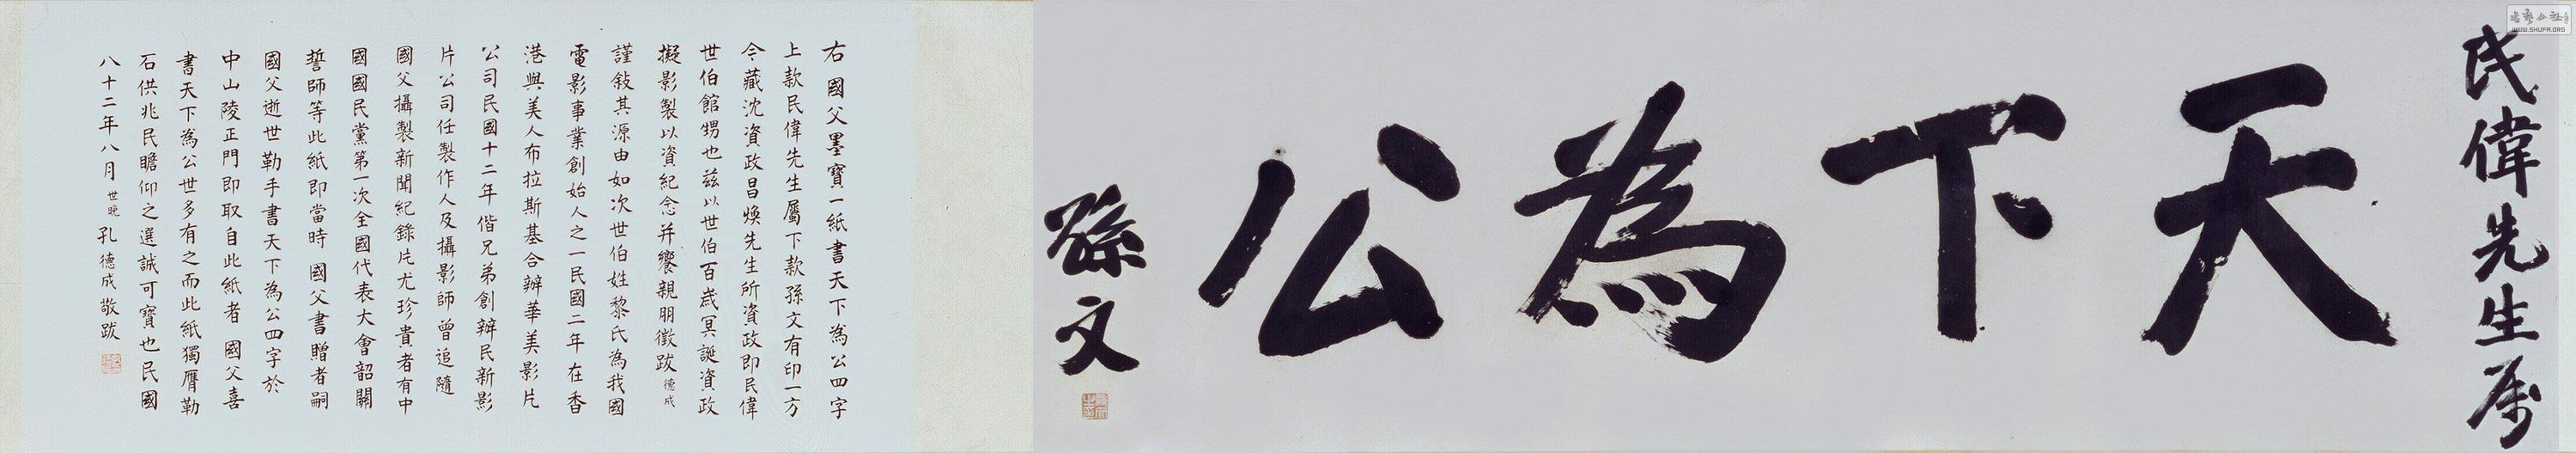 民偉先生属
天下為公
孫文
右 國父墨寶一紙書天下為公四字
上款民偉先生屬下款孫文有印一方
今藏沈資政昌煥先生所資政即民偉
世伯館甥也茲以世伯百歲冥誕資政
擬影製以資紀念并饗親朋徵跋德成
謹敍其源由如次世伯姓黎氏為我國
電影事業創始人之一民國二年在香
港與美人布拉斯基合辦華美影片
公司民國十二年偕兄弟創辦民新影
片公司任製作人及攝影師曾追隨
國父攝製新聞紀錄片尤珍貴者有中
國國民黨第一次全國代表大會韶關
誓師等此紙即當時 國父書贈者嗣
國父逝世勒手書天下為公四字於
中山陵正門即取自此紙者 國父喜
書天下為公世多有之而此紙獨膺勒
石供兆民瞻仰之選誠可寶也民國
八十二年八月 世晚 孔德成敬跋
WWW.SHUFA.ORG